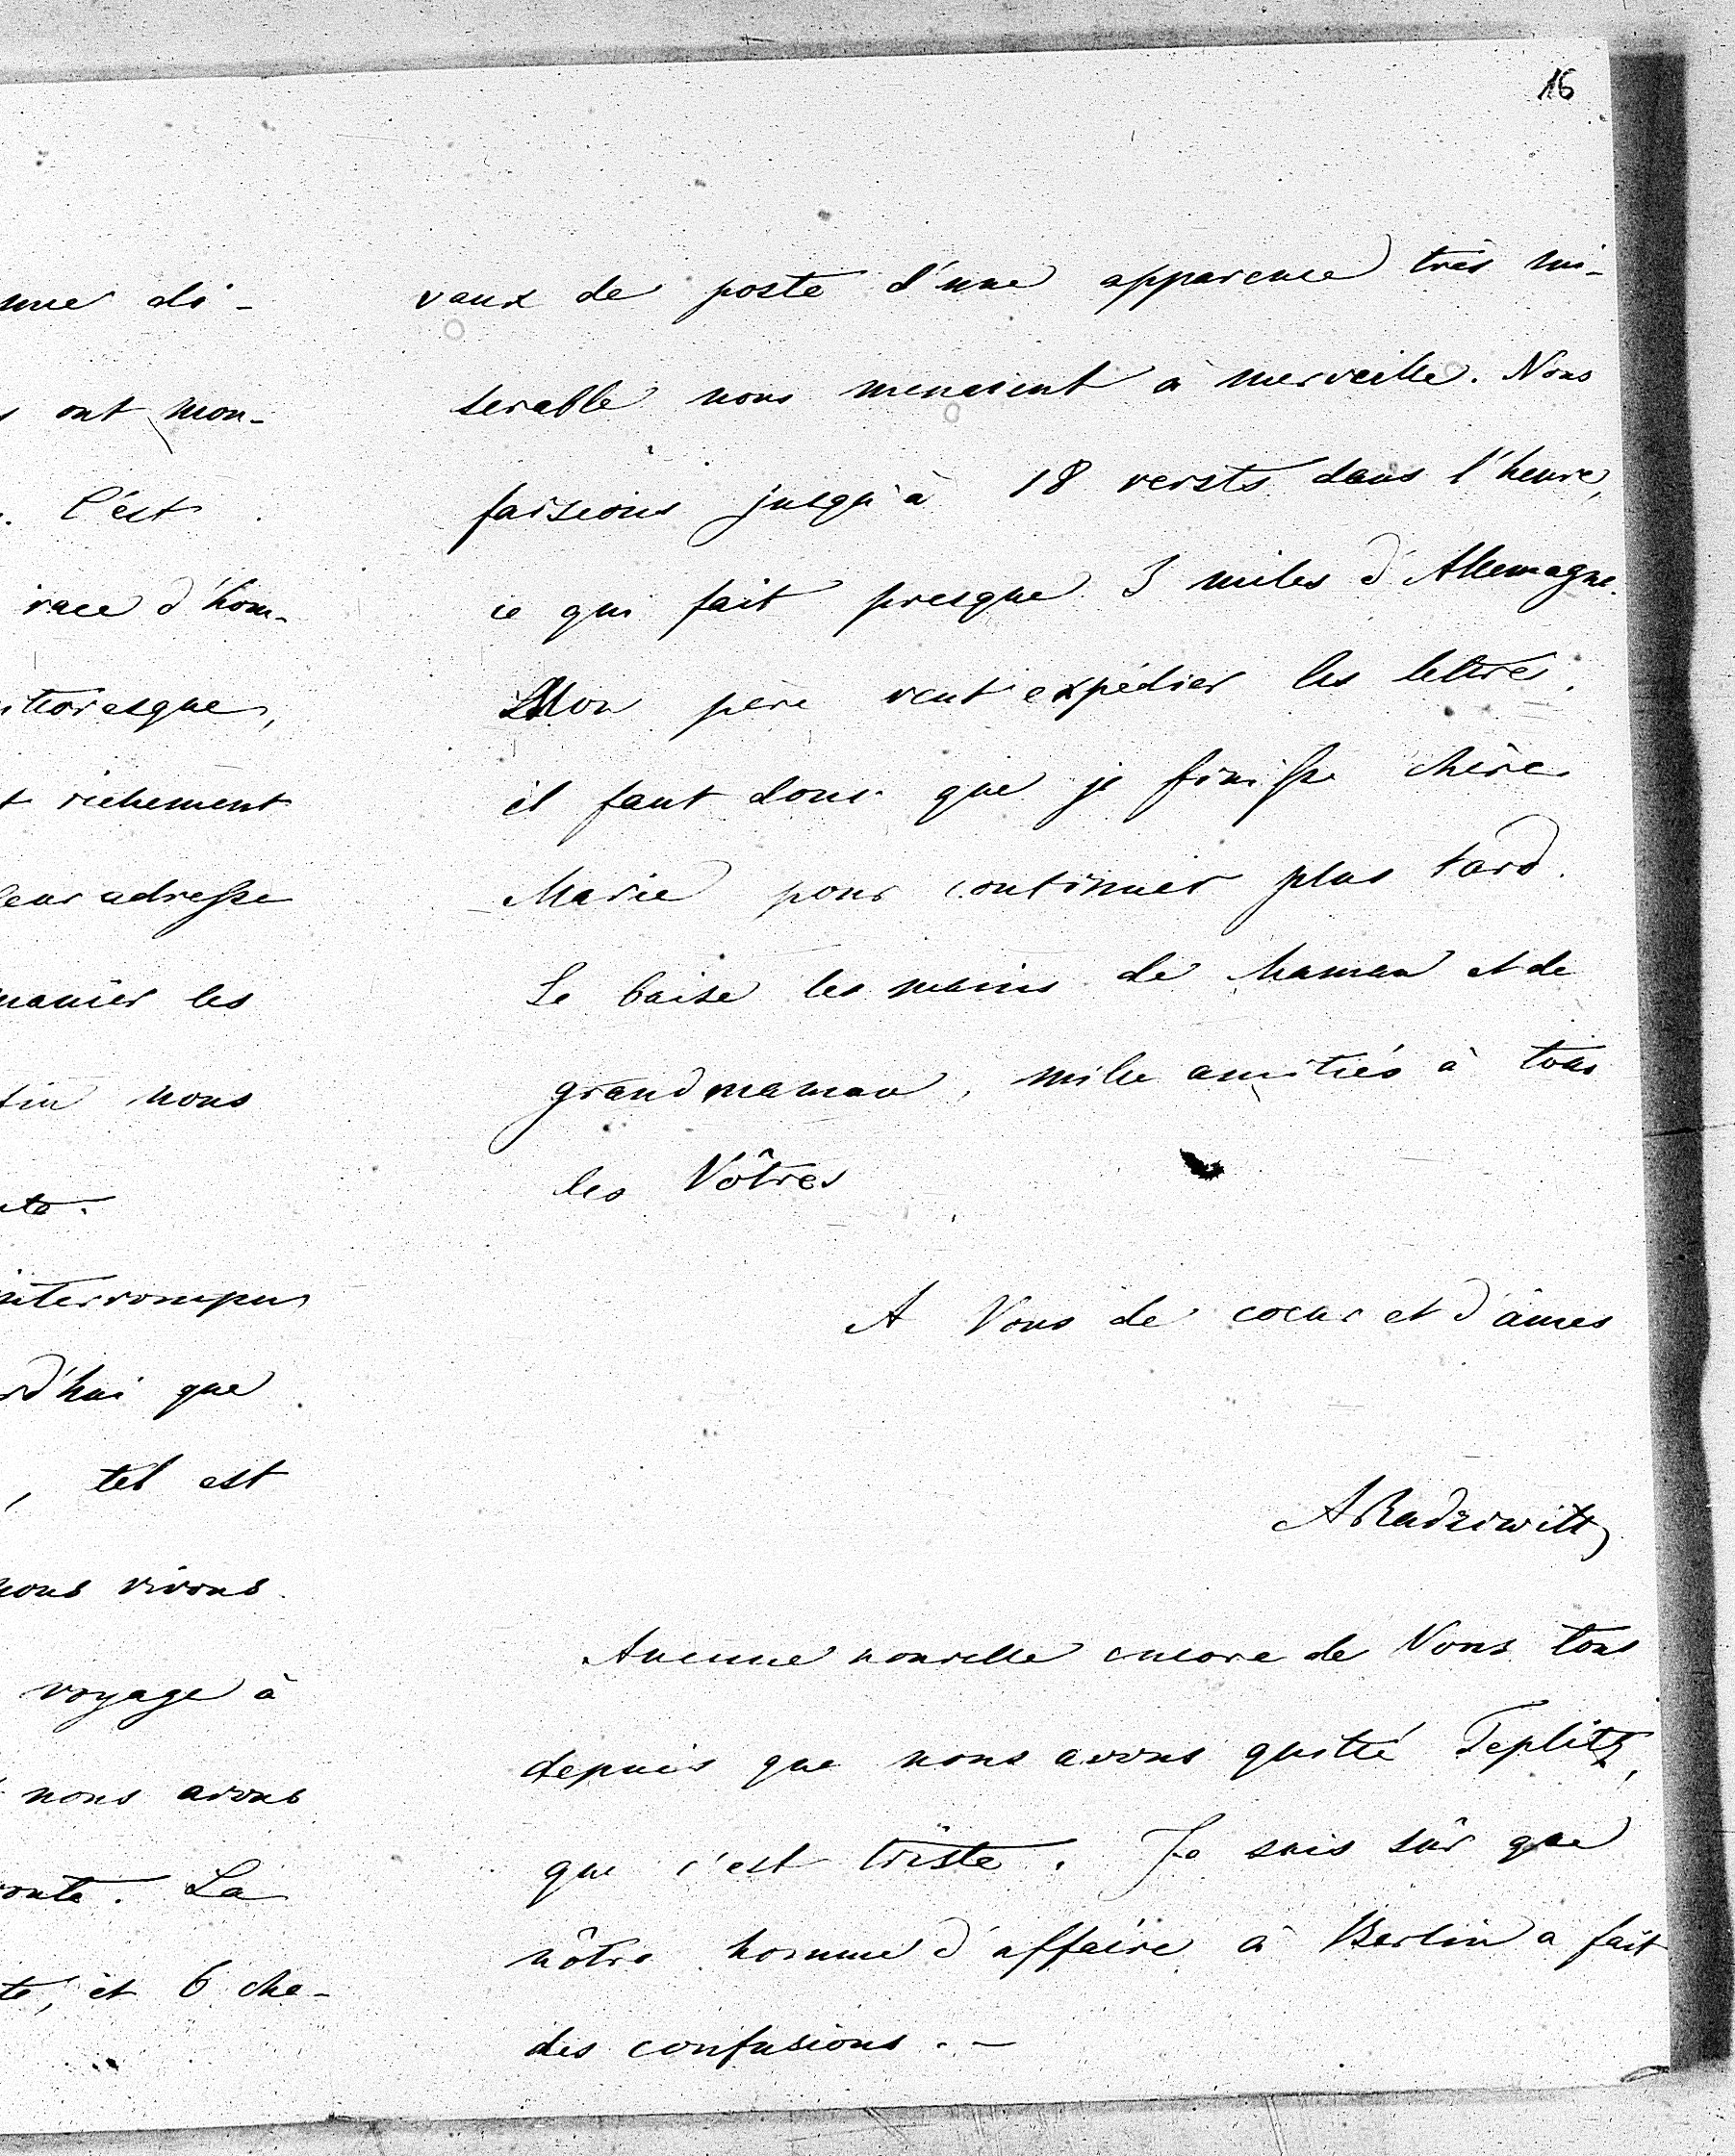 16
nne di-
ont mon-
C'est
race d'hom-
ittoresque,
richement
leur adresse
manier les
fin nous
interrompus
rd'hui que
, tel est
nous vivons
voyage à
nous avons
route. La
te, et 6 che-
vaux de poste d'une apparence très mi-
serable nous menaient à merveille. Nous
faiseions jusqu'à 18 versts dans l'heure,
ce qui fait presque 3 miles d'Allemagne.
Mon père veut expédier les lettres,
il faut donc que je finisse chère
Marie pour continuer plus tard.
Je baise les mains de Maman et de
grandmaman, mille amitiés à tous
les Vôtres
A Vous de coeur et d'âmes
ARadziwill
Aucune nouvelle encore de Vous tous
depuis que nous avons quitté Teplitz,
que c'est triste. Je suis sûr que
nôtre homme d'affaire à Berlin a fait
des confusions. –